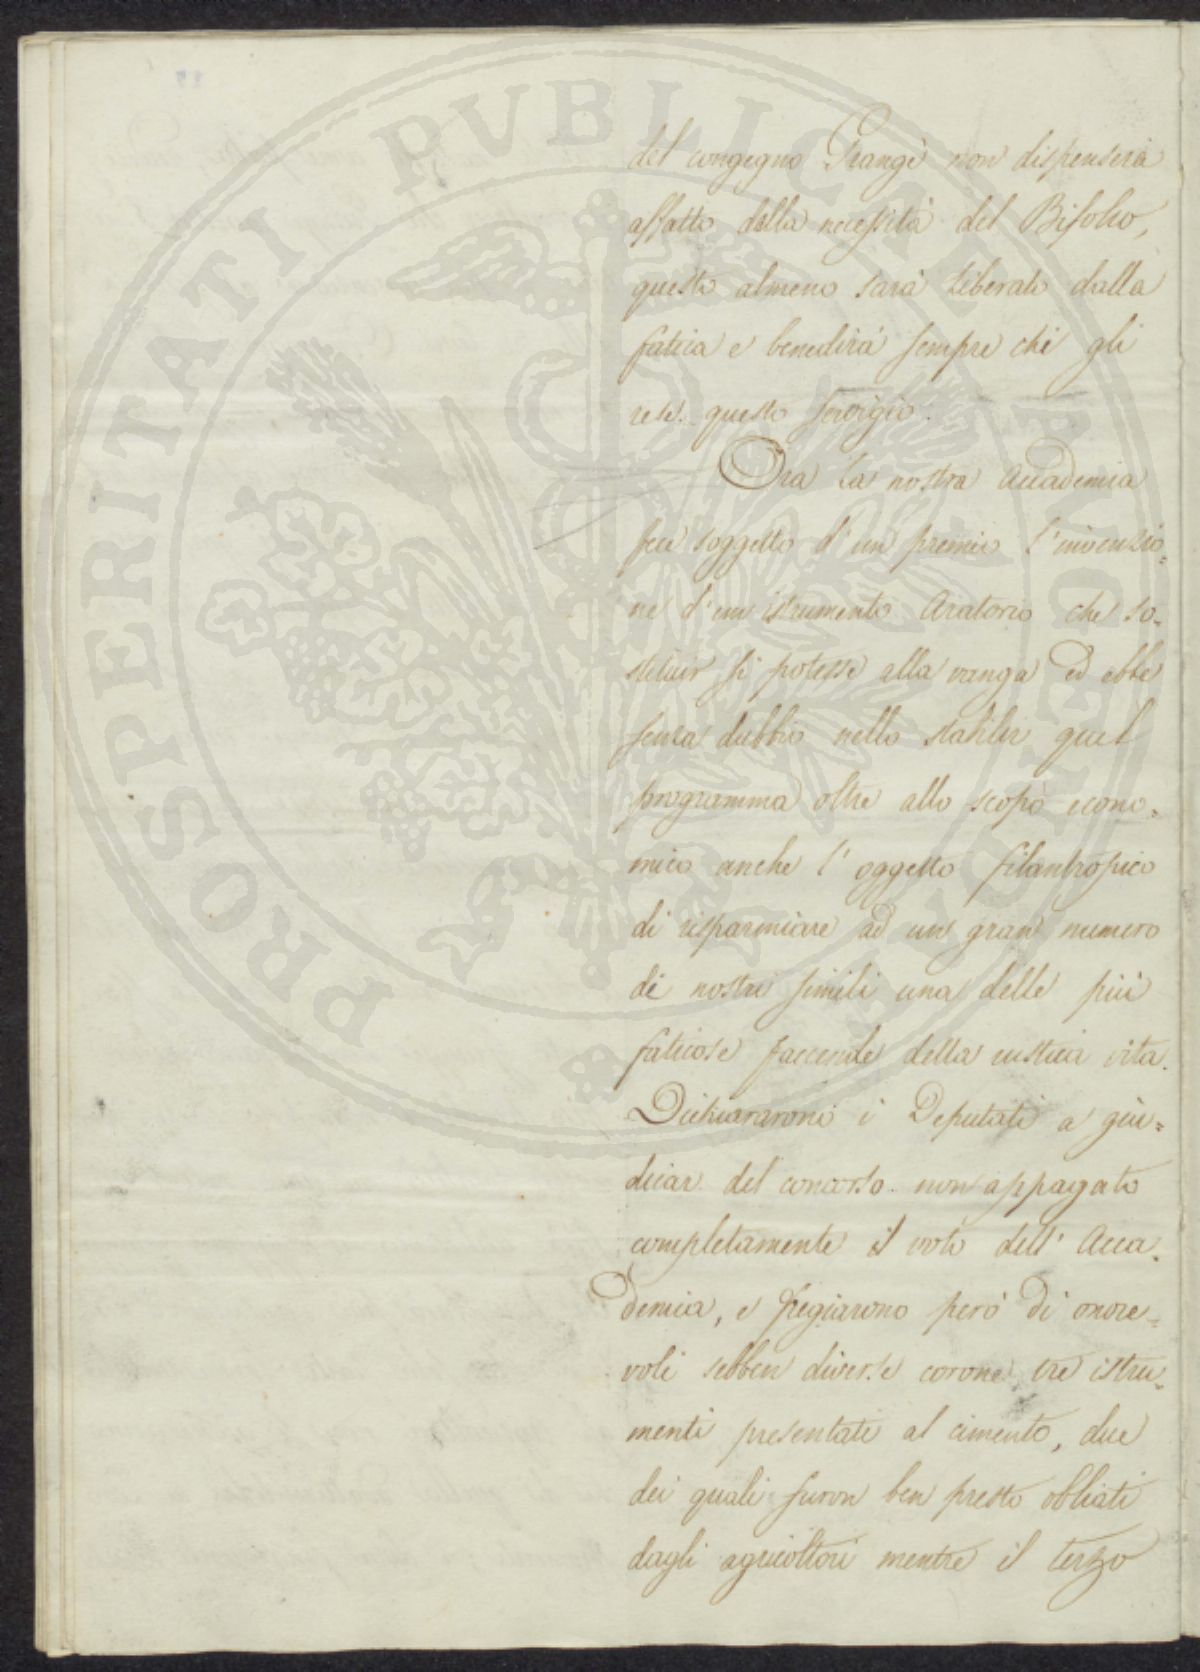 del congegno Grangè non dispenserà
affatto dalla necessità del Bifolco,
questo almeno sarà liberato dalla
fatica e benedirà sempre chi gli
rese questo servigio.
Ora la nostra Accademia
fece soggetto d'un premio l'invenzio=
ne d'un istrumento Aratorio che so=
stituir si potesse alla vanga ed ebbe
senza dubbio nello stabilir quel
programma oltre allo scopo econo=
mico anche l'oggetto filantropico
di risparmiare ad un gran numero
di nostri simili una delle più
faticose faccende della rustica vita.
Dichiararono i Deputati a giu=
dicar del concorso non appagato
completamente il voto dell'Acca=
demia, e fregiarono però di onore=
voli sebben diverse corone tre istru=
menti presentati al cimento, due
dei quali furon ben presto obliati
dagli agricoltori mentre il terzo
PROSPERITATI PVBLICAE AVGENDAE